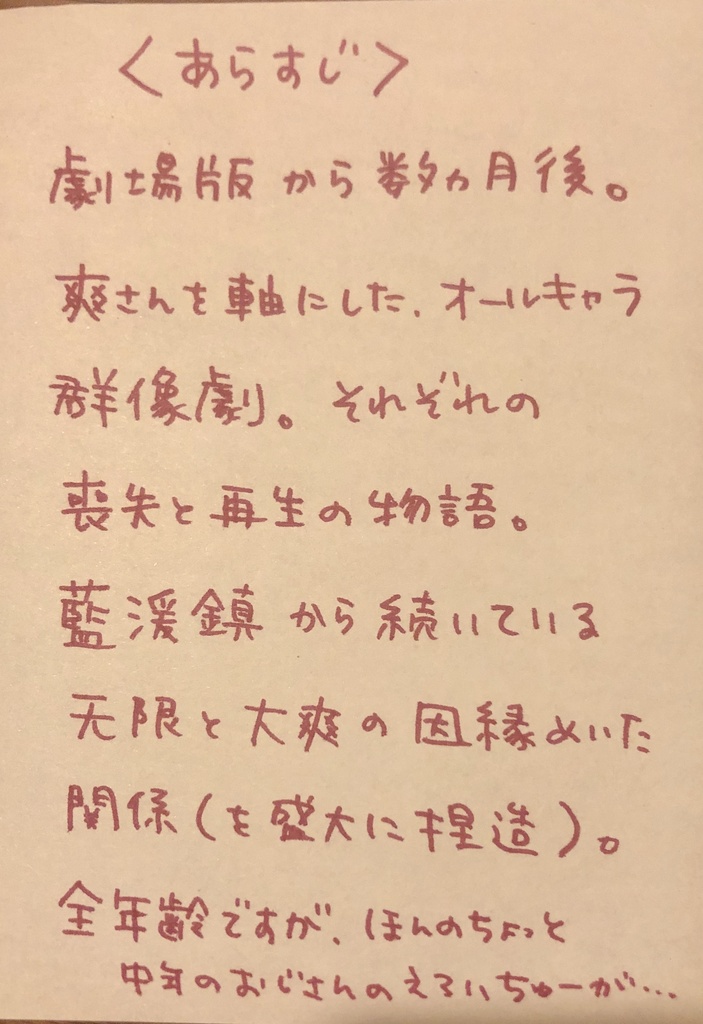 〈あらすじ〉
劇場版から数ヵ月後。
爽さんを軸にした、オールキャラ
群像劇。それぞれの
喪失と再生の物語。
藍湲鎮から続いている
无限と大爽の因縁めいた
関係(を盛大に捏造)。
全年齢ですが、ほんのちょっと
中年のおじさんのえろいちゅーが…